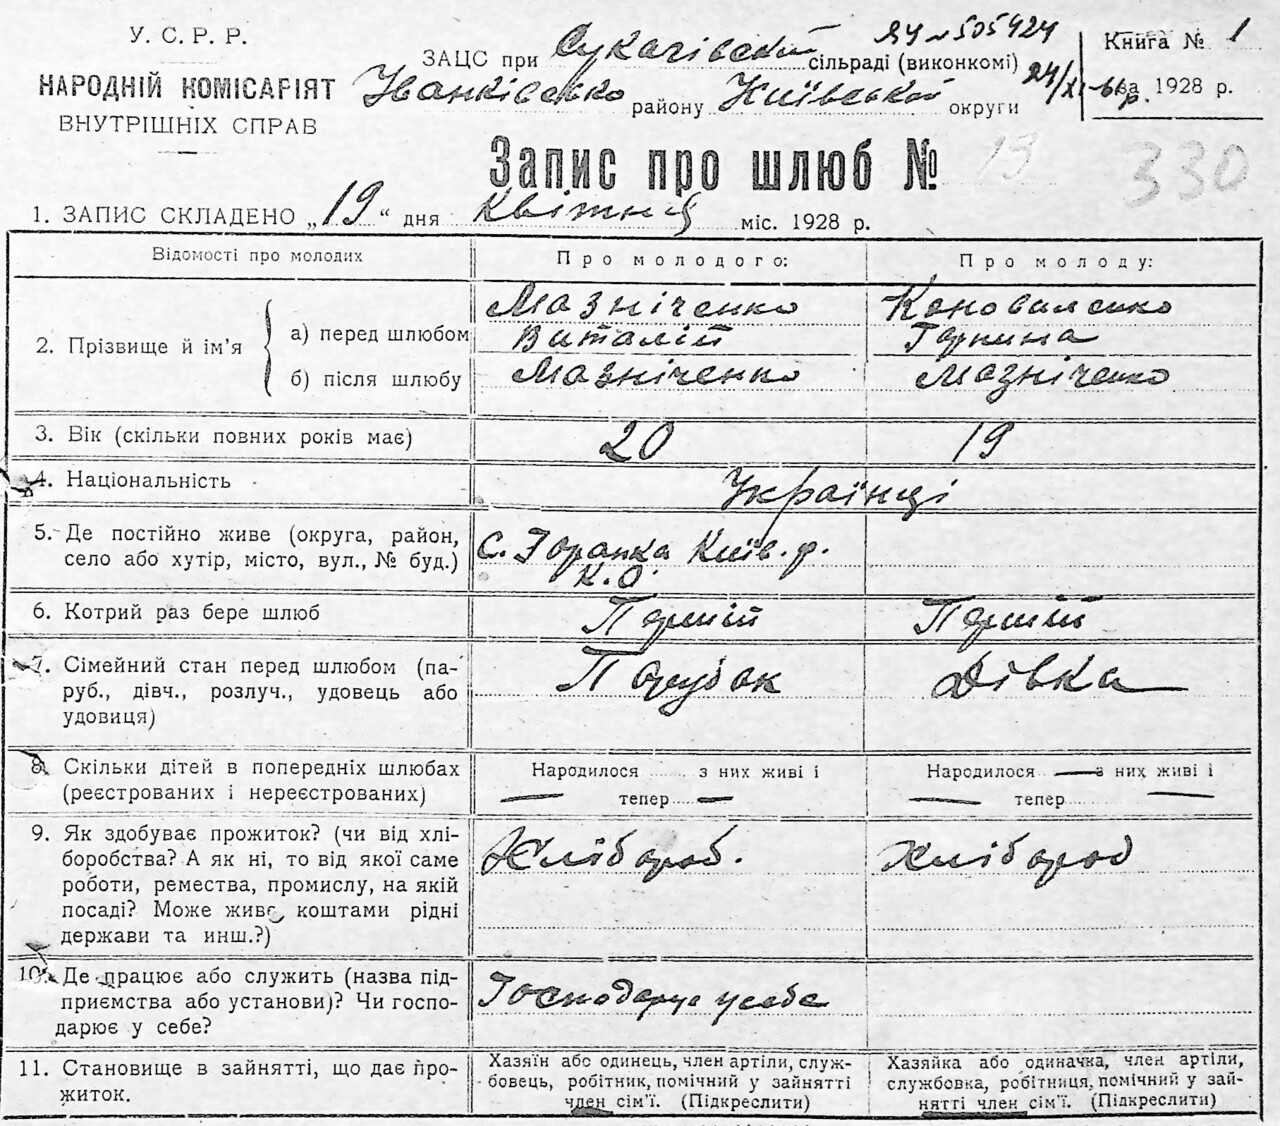 У. С. Р. Р.
НАРОДНІЙ КОМІСАРІЯТ
ВНУТРІШНІХ СПРАВ
ЗАЦС при Сукачівській сільраді (виконкомі)
505424
Іванківсько району Київської округи
24/XI-61р.
Книга № 1
за 1928 р.
Запис про шлюб № 13
330
1. ЗАПИС СКЛАДЕНО „19“ дня Квітня міс. 1928 р.
Відомості про молодих
Про молодого:
Про молоду:
2. Прізвище й ім’я
а) перед шлюбом
Мазніченко
Виталій
Коноваленко
Горпина
б) після шлюбу
Мазніченко
Мазніченко
3. Вік (скільки повних років має)
20
19
4. Національність
Українці
5. Де постійно живе (округа, район,
село або хутір, місто, вул., № буд.)
С. Київ. р.
К.О.
6. Котрий раз бере шлюб
Перший
Перший
7. Сімейний стан перед шлюбом (па-
руб., дівч., розлуч., удовець або
удовиця)
Парубок
Дівка
8. Скільки дітей в попередніх шлюбах
(реєстрованих і нереєстрованих)
Народилося — з них живі і
тепер —
Народилося — з них живі і
тепер —
9. Як здобуває прожиток? (чи від хлі-
боробства? А як ні, то від якої саме
роботи, ремества, промислу, на якій
посаді? Може живе коштами рідні
держави та инш.?)
Хлібороб.
Хлібороб
10. Де працює або служить (назва під-
приємства або установи)? Чи госпо-
дарює у себе?
Господарує у себе
11. Становище в зайнятті, що дає про-
житок.
Хазяїн або одинець, член артіли, служ-
бовець, робітник, помічний у зайнятті
член сім’ї. (Підкреслити)
Хазяйка або одиначка, член артіли,
службовка, робітниця, помічний у зай-
нятті член сім’ї. (Підкреслити)